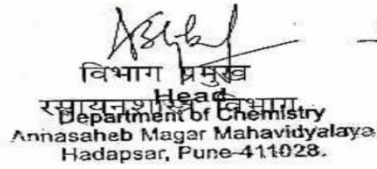 विभाग प्रमुख
Head
रसायनशास्त्र विभाग
Department of Chemistry
Annasaheb Magar Mahavidyalaya
Hadapsar, Pune-411028.